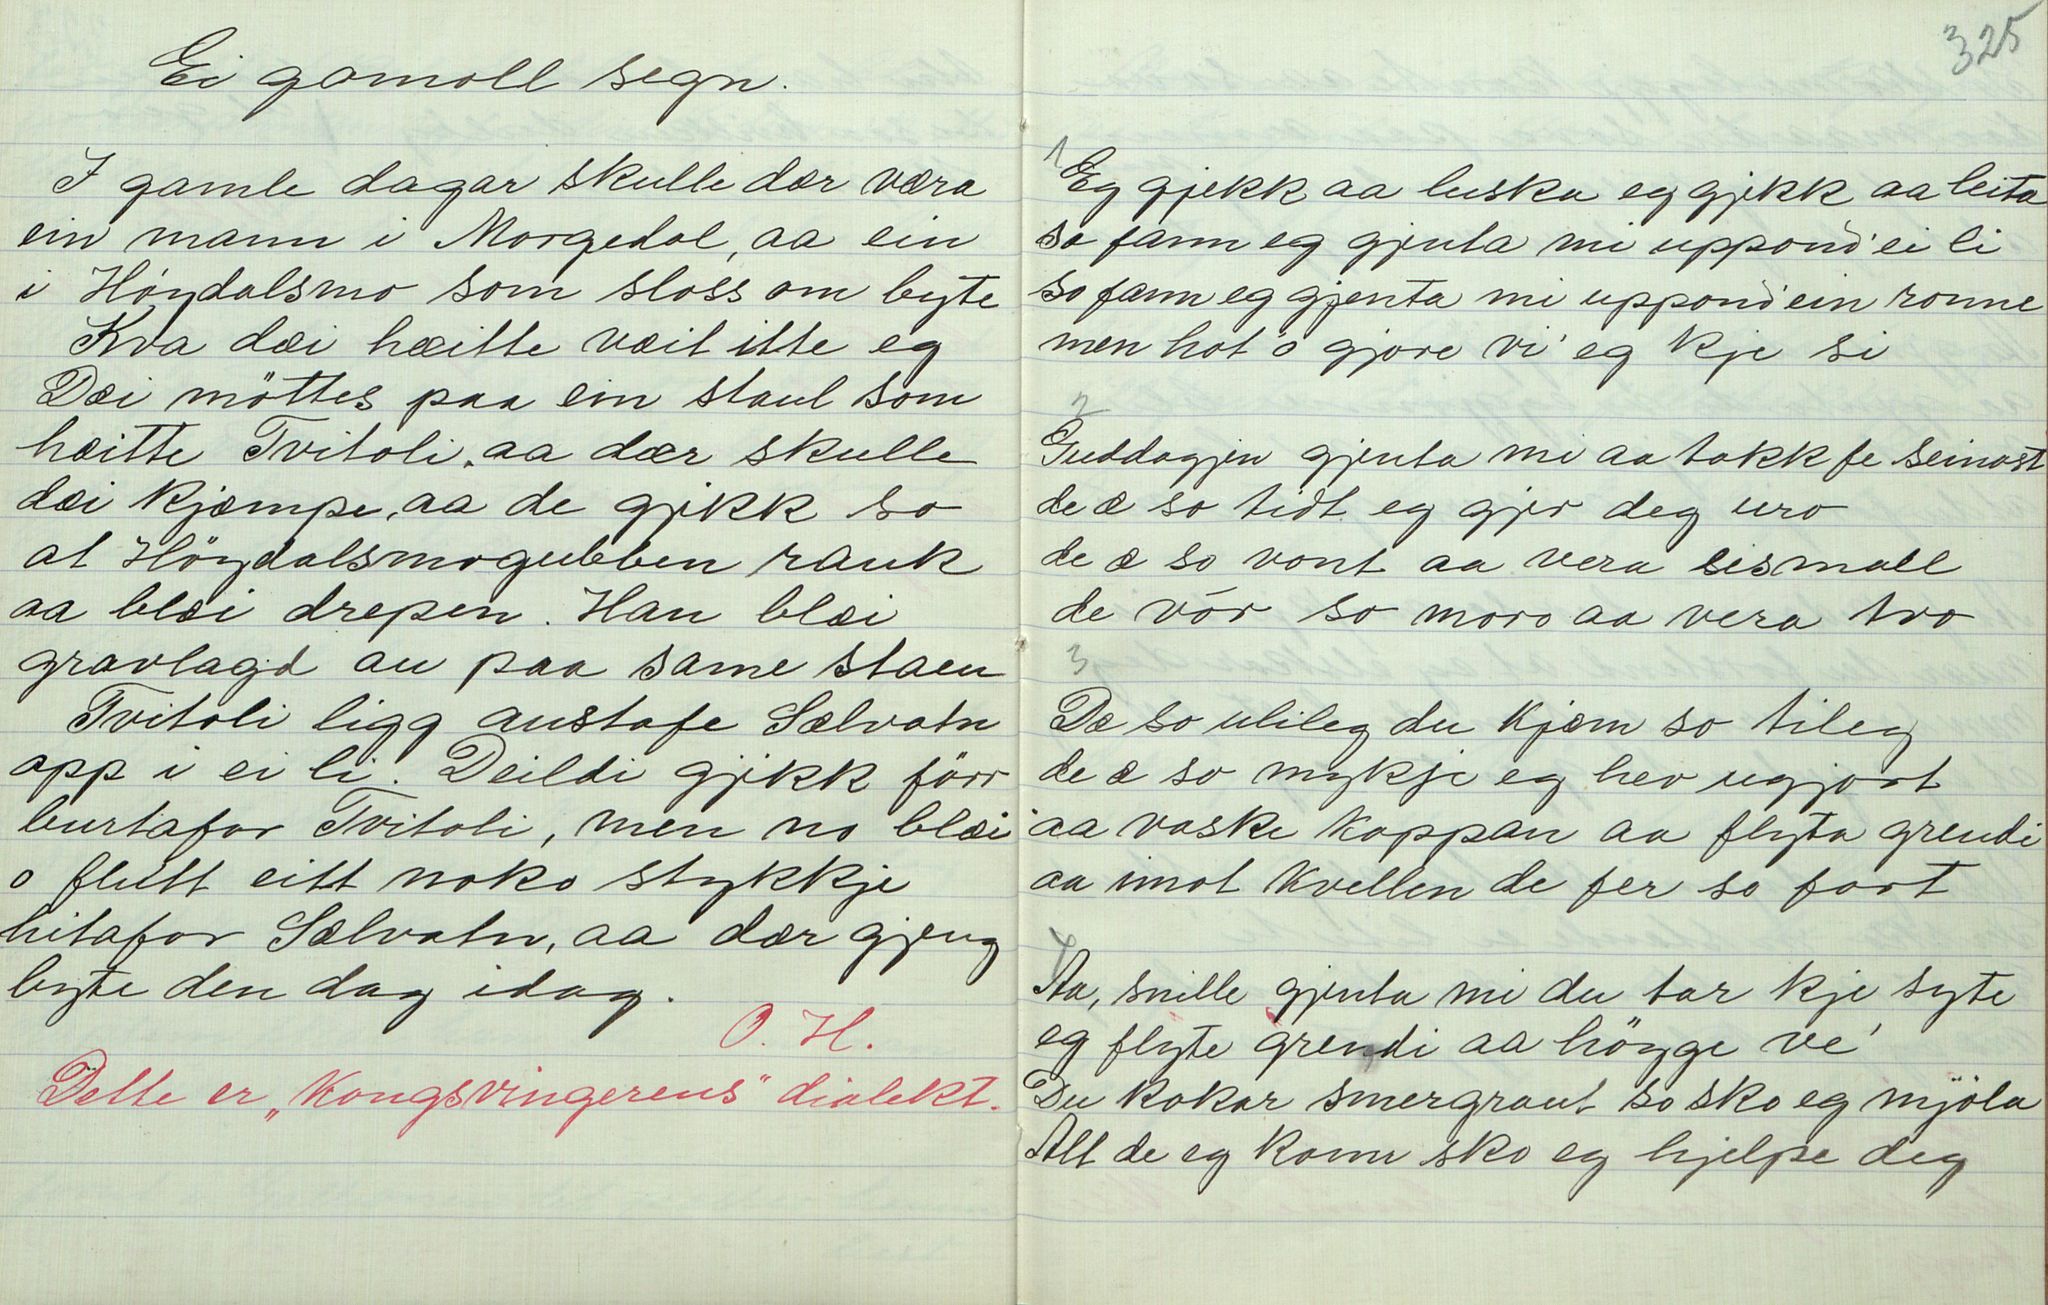 Ei gamoll segn.
I gamle dagar skulle dær væra
ein mann i Morgedal, aa ein
i Höydalsmo som sloss om byte
Kva dæi hæitte væit itte eg
Dæi möttes paa ein staul som
hæitte Tvitoli. aa dær skulle
dæi kjæmpe, aa de gjekk so
at Höydalsmogubben rauk
aa blæi drepen. Han blæi
gravlagd au paa same staen
Tvitoli ligg austafe Sælvatn
opp i ei li. Deildi gjekk förr
burtafor Tvitoli, men no blæi
o flutt eitt noko stykkje
hitafor Sælvatn, aa dær gjeng
byte den dag idag.
O. H.
Dette er „Kongsvingerens" dialekt.
325
1
Eg gjekk aa luska eg gjekk aa leita
so fann eg gjenta mi uppond' ei li
so fann eg gjenta mi uppond' ein ronne
men hot o gjore vi' eg kje si
2
Guddagjen gjenta mi aa takk fe seinast
de æ so tidt eg gjer deg uro
de æ so vont aa vera eismall
de vór so moro aa vera tvo
3
Dæ so ulileg du kjæm so tileg
de æ so mykje eg hev ugjort
aa vaske koppan aa flyta grendi
aa imot kvellen de fer so fort
4
Aa, snille gjenta mi du tar kje syte
eg flyte grendi aa höyge ve'
Du kokar smergraut so sko eg mjöla
Alt de eg konn sko eg hjelpe deg